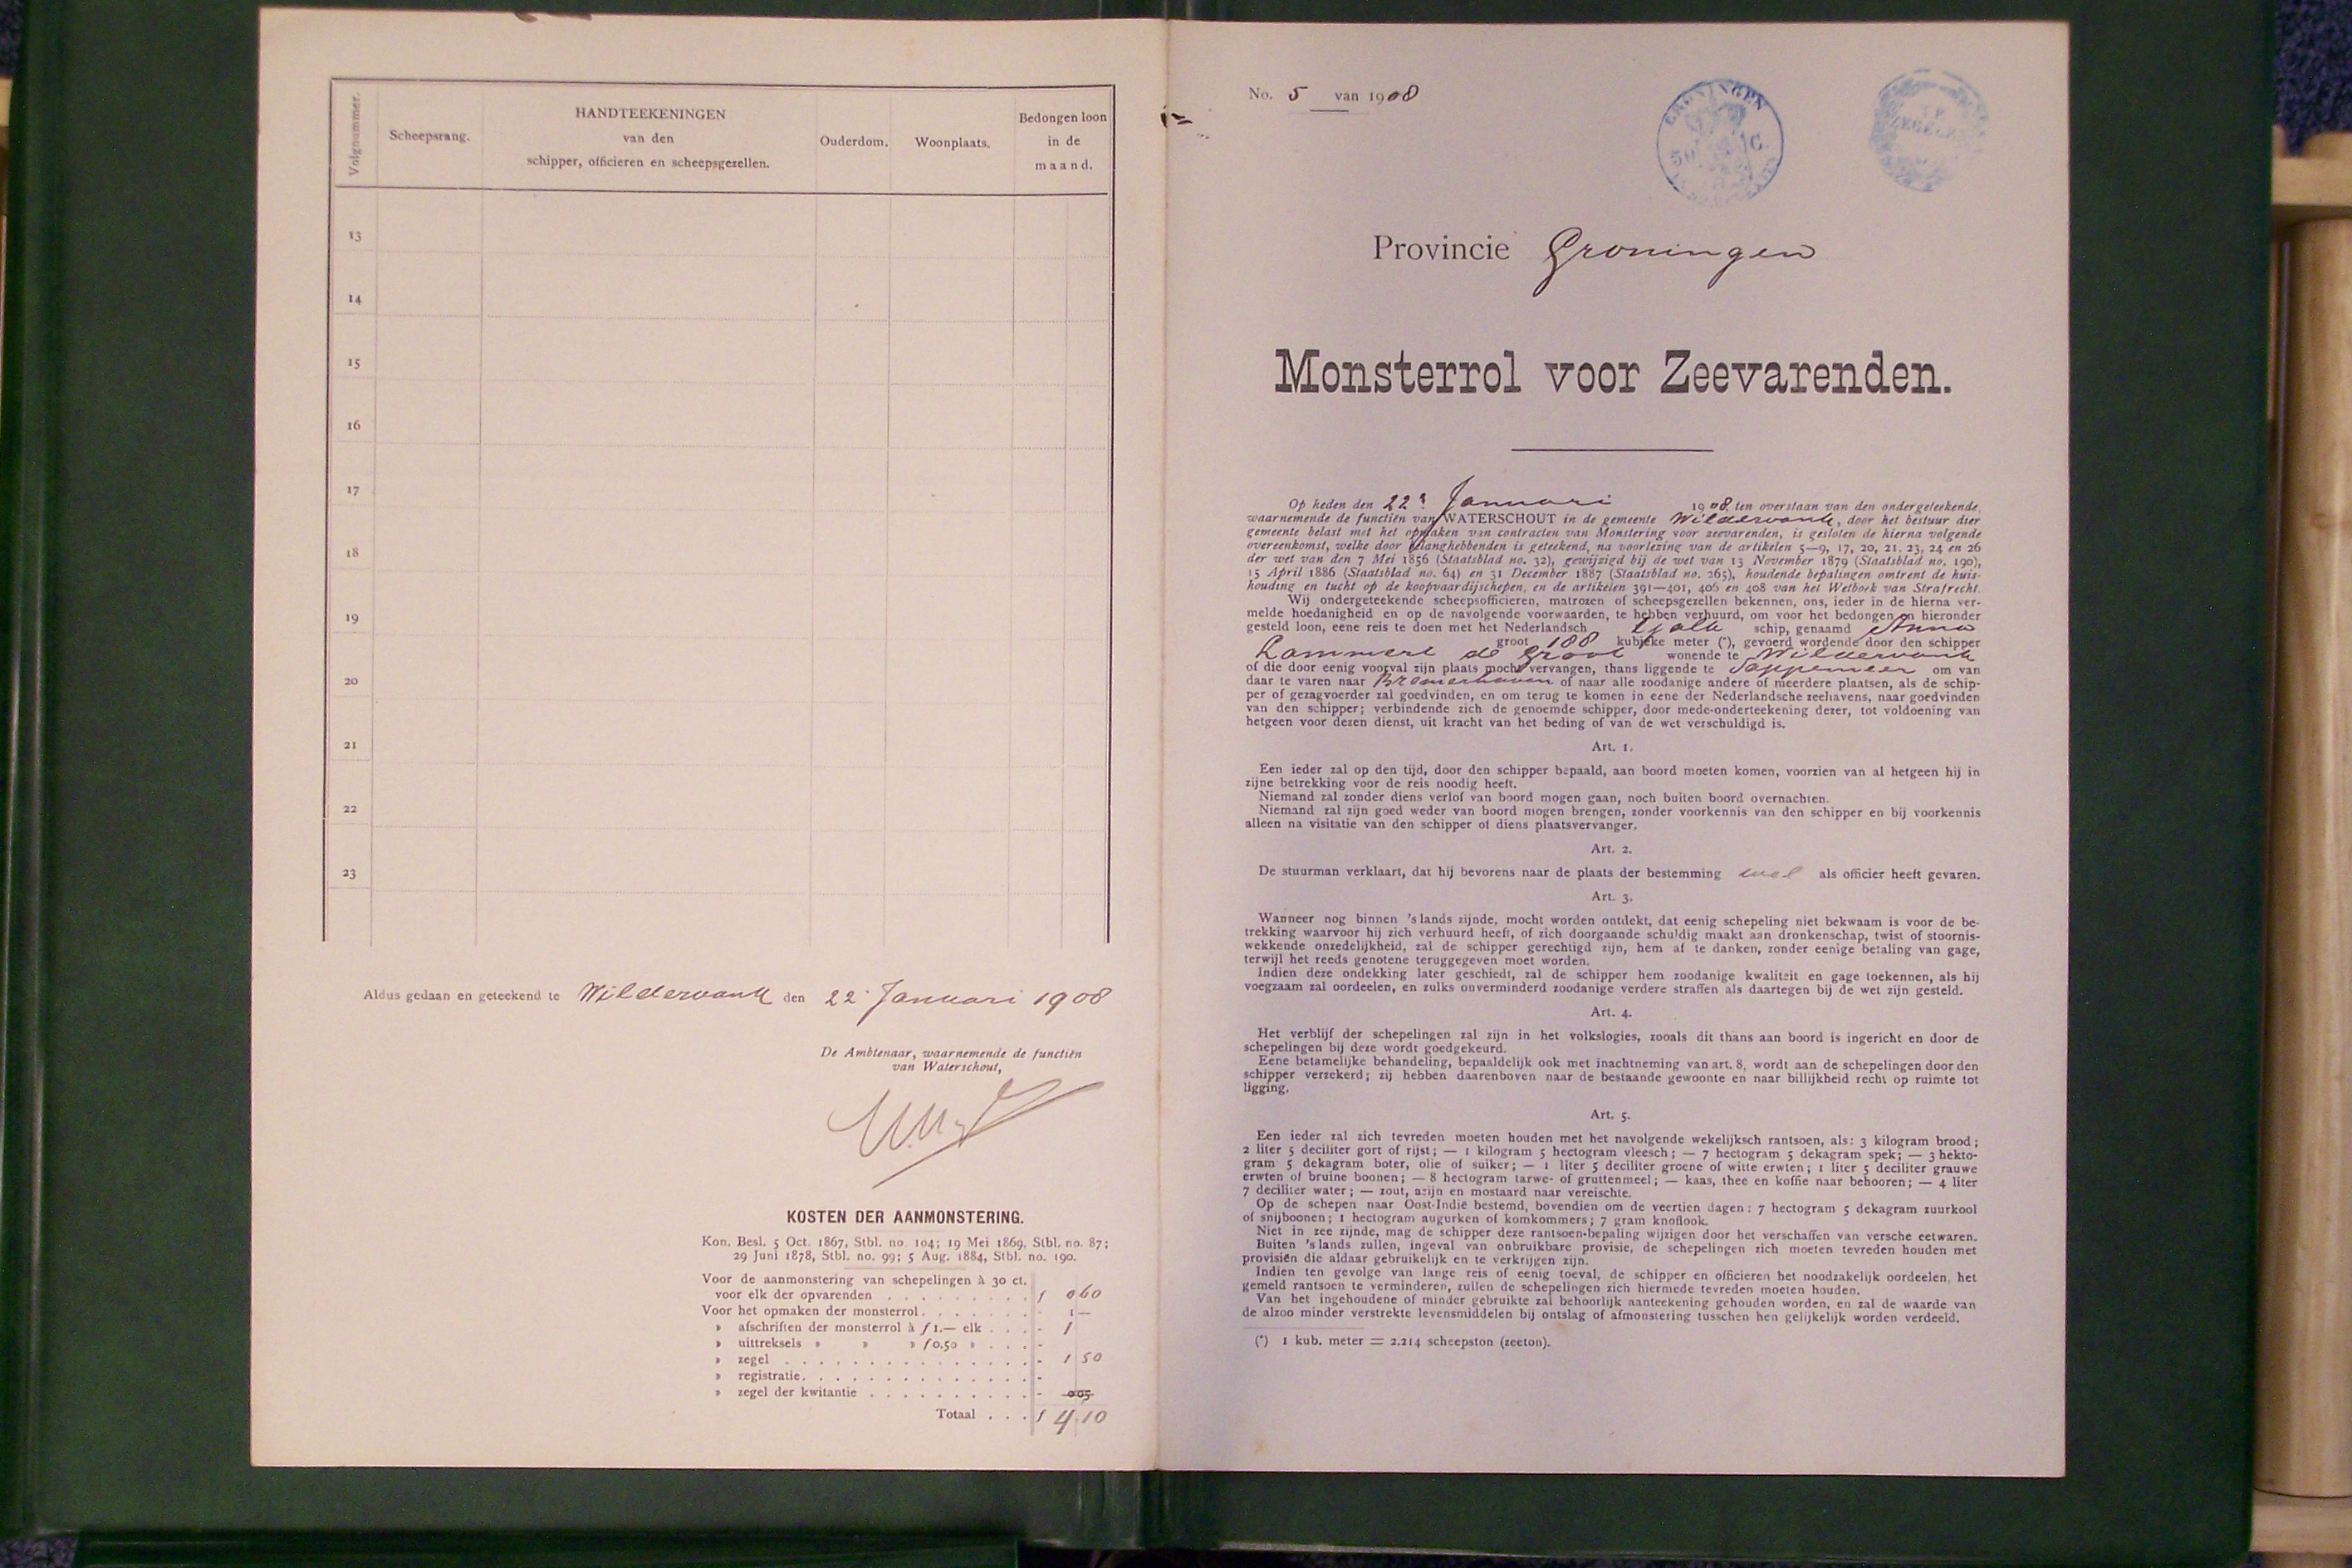 Volgnummer.
Scheepsrang.
HANDTEEKENINGEN
van den
schipper, officieren en scheepsgezellen.
Ouderdom.
Woonplaats.
Bedongen loon
in de
maand.
13
14
15
16
17
18
19
20
21
22
23
Aldus gedaan en geteekend te Wildervank den 22 Januari 1908
De Ambtenaar, waarnemende de functiën
van Waterschout,
KOSTEN DER AANMONSTERING.
Kon. Besl. 5 Oct. 1867, Stbl. no. 104; 19 Mei 1869, Stbl. no. 87;
29 Juni 1878, Stbl. no. 99; 5 Aug. 1884, Stbl. no. 190.
Voor de aanmonstering van schepelingen à 30 ct.
voor elk der opvarenden . . . . . . . . . f 0 60
Voor het opmaken der monsterrol . . . . . . . - 1 —
» afschriften der monsterrol à f 1.— elk . . . - 1
» uittreksels » » » f 0.50 » . . . -
» zegel . . . . . . . . . . . . . . . - 1 50
» registratie. . . . . . . . . . . . . . -
» zegel der kwitantie . . . . . . . . . . - 005
Totaal . . . f 4.10
No. 5 van 1908
GRONINGEN
50 C.
TE
ZEGELEN
Provincie Groningen
Monsterrol voor Zeevarenden.
Op heden den 22e Januari 1908 ten overstaan van den ondergeteekende,
waarnemende de functiën van WATERSCHOUT in de gemeente Wildervank, door het bestuur dier
gemeente belast met het opmaken van contracten van Monstering voor zeevarenden, is gesloten de hierna volgende
overeenkomst, welke door belanghebbenden is geteekend, na voorlezing van de artikelen 5—9, 17, 20, 21, 23, 24 en 26
der wet van den 7 Mei 1856 (Staatsblad no. 32), gewijzigd bij de wet van 13 November 1879 (Staatsblad no. 190),
15 April 1886 (Staatsblad no. 64) en 31 December 1887 (Staatsblad no. 265), houdende bepalingen omtrent de huis-
houding en tucht op de koopvaardijschepen, en de artikelen 391—401, 406 en 408 van het Wetboek van Strafrecht.
Wij ondergeteekende scheepsofficieren, matrozen of scheepsgezellen bekennen, ons, ieder in de hierna ver-
melde hoedanigheid en op de navolgende voorwaarden, te hebben verhuurd, om voor het bedongen en hieronder
gesteld loon, eene reis te doen met het Nederlandsch tjalk schip, genaamd Anna
groot 188 kubieke meter (*), gevoerd wordende door den schipper
Lammert de Groot wonende te Wildervank
of die door eenig voorval zijn plaats mocht vervangen, thans liggende te Sappemeer om van
daar te varen naar Bremerhaven of naar alle zoodanige andere of meerdere plaatsen, als de schip-
per of gezagvoerder zal goedvinden, en om terug te komen in eene der Nederlandsche zeehavens, naar goedvinden
van den schipper; verbindende zich de genoemde schipper, door mede-onderteekening dezer, tot voldoening van
hetgeen voor dezen dienst, uit kracht van het beding of van de wet verschuldigd is.
Art. 1.
Een ieder zal op den tijd, door den schipper bepaald, aan boord moeten komen, voorzien van al hetgeen hij in
zijne betrekking voor de reis noodig heeft.
Niemand zal zonder diens verlof van boord mogen gaan, noch buiten boord overnachten.
Niemand zal zijn goed weder van boord mogen brengen, zonder voorkennis van den schipper en bij voorkennis
alleen na visitatie van den schipper of diens plaatsvervanger.
Art. 2.
De stuurman verklaart, dat hij bevorens naar de plaats der bestemming wel als officier heeft gevaren.
Art. 3.
Wanneer nog binnen 's lands zijnde, mocht worden ontdekt, dat eenig schepeling niet bekwaam is voor de be-
trekking waarvoor hij zich verhuurd heeft, of zich doorgaande schuldig maakt aan dronkenschap, twist of stoornis-
wekkende onzedelijkheid, zal de schipper gerechtigd zijn, hem af te danken, zonder eenige betaling van gage,
terwijl het reeds genotene teruggegeven moet worden.
Indien deze ondekking later geschiedt, zal de schipper hem zoodanige kwaliteit en gage toekennen, als hij
voegzaam zal oordeelen, en zulks onverminderd zoodanige verdere straffen als daartegen bij de wet zijn gesteld.
Art. 4.
Het verblijf der schepelingen zal zijn in het volkslogies, zooals dit thans aan boord is ingericht en door de
schepelingen bij deze wordt goedgekeurd.
Eene betamelijke behandeling, bepaaldelijk ook met inachtneming van art. 8, wordt aan de schepelingen door den
schipper verzekerd; zij hebben daarenboven naar de bestaande gewoonte en naar billijkheid recht op ruimte tot
ligging.
Art. 5.
Een ieder zal zich tevreden moeten houden met het navolgende wekelijksch rantsoen, als: 3 kilogram brood;
2 liter 5 deciliter gort of rijst; — 1 kilogram 5 hectogram vleesch; — 7 hectogram 5 dekagram spek; — 3 hekto-
gram 5 dekagram boter, olie of suiker; — 1 liter 5 deciliter groene of witte erwten; 1 liter 5 deciliter grauwe
erwten of bruine boonen; — 8 hectogram tarwe- of gruttenmeel; — kaas, thee en koffie naar behooren; — 4 liter
7 deciliter water; — zout, azijn en mostaard naar vereischte.
Op de schepen naar Oost-Indië bestemd, bovendien om de veertien dagen: 7 hectogram 5 dekagram zuurkool
of snijboonen; 1 hectogram augurken of komkommers; 7 gram knoflook.
Niet in zee zijnde, mag de schipper deze rantsoen-bepaling wijzigen door het verschaffen van versche eetwaren.
Buiten 's lands zullen, ingeval van onbruikbare provisie, de schepelingen zich moeten tevreden houden met
provisiën die aldaar gebruikelijk en te verkrijgen zijn.
Indien ten gevolge van lange reis of eenig toeval, de schipper en officieren het noodzakelijk oordeelen, het
gemeld rantsoen te verminderen, zullen de schepelingen zich hiermede tevreden moeten houden.
Van het ingehoudene of minder gebruikte zal behoorlijk aanteekening gehouden worden, en zal de waarde van
de alzoo minder verstrekte levensmiddelen bij ontslag of afmonstering tusschen hen gelijkelijk worden verdeeld.
(*) 1 kub. meter = 2.214 scheepston (zeeton).